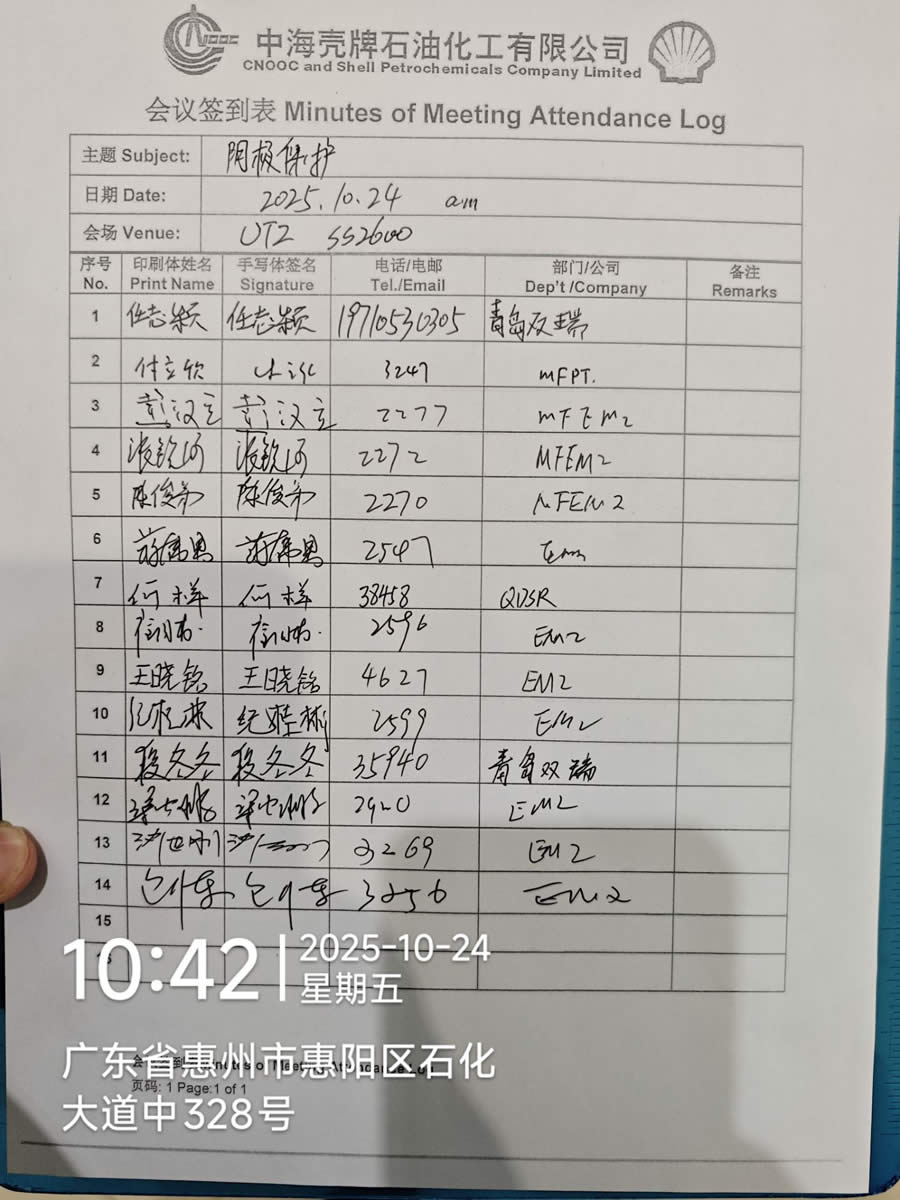 CNOOC
中海壳牌石油化工有限公司
CNOOC and Shell Petrochemicals Company Limited
会议签到表 Minutes of Meeting Attendance Log
主题 Subject: 阴极保护
日期 Date: 2025.10.24 am
会场 Venue: UT2 SS2600
序号 印刷体姓名 手写体签名 电话/电邮 部门/公司 备注
No. Print Name Signature Tel./Email Dep't /Company Remarks
1 任志颖 任志颖 19710530305 青岛双瑞
2 付立欣 3247 MFPT.
3 彭汉立 彭汉立 2277 MFEM2
4 2272 MFEM2
5 陈俊弟 陈俊弟 2270 MFEM2
6 2547
7 何祥 何祥 38458 QDSR
8 2596 EM2
9 王晓铭 王晓铭 4627 EM2
10 纪桂彬 纪桂彬 2599 EM2
11 段冬冬 段冬冬 35940 青岛双瑞
12 2920 EM2
13 3269 EM2
14 3256 EM2
15
10:42 2025-10-24
星期五
广东省惠州市惠阳区石化
大道中328号
页码: 1 Page:1 of 1